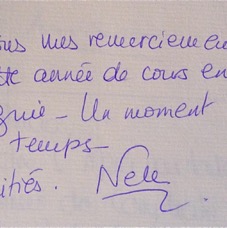 ous mes remerciemen
tte année de cours en
gnie – Un moment
temps –
itiés. Nele